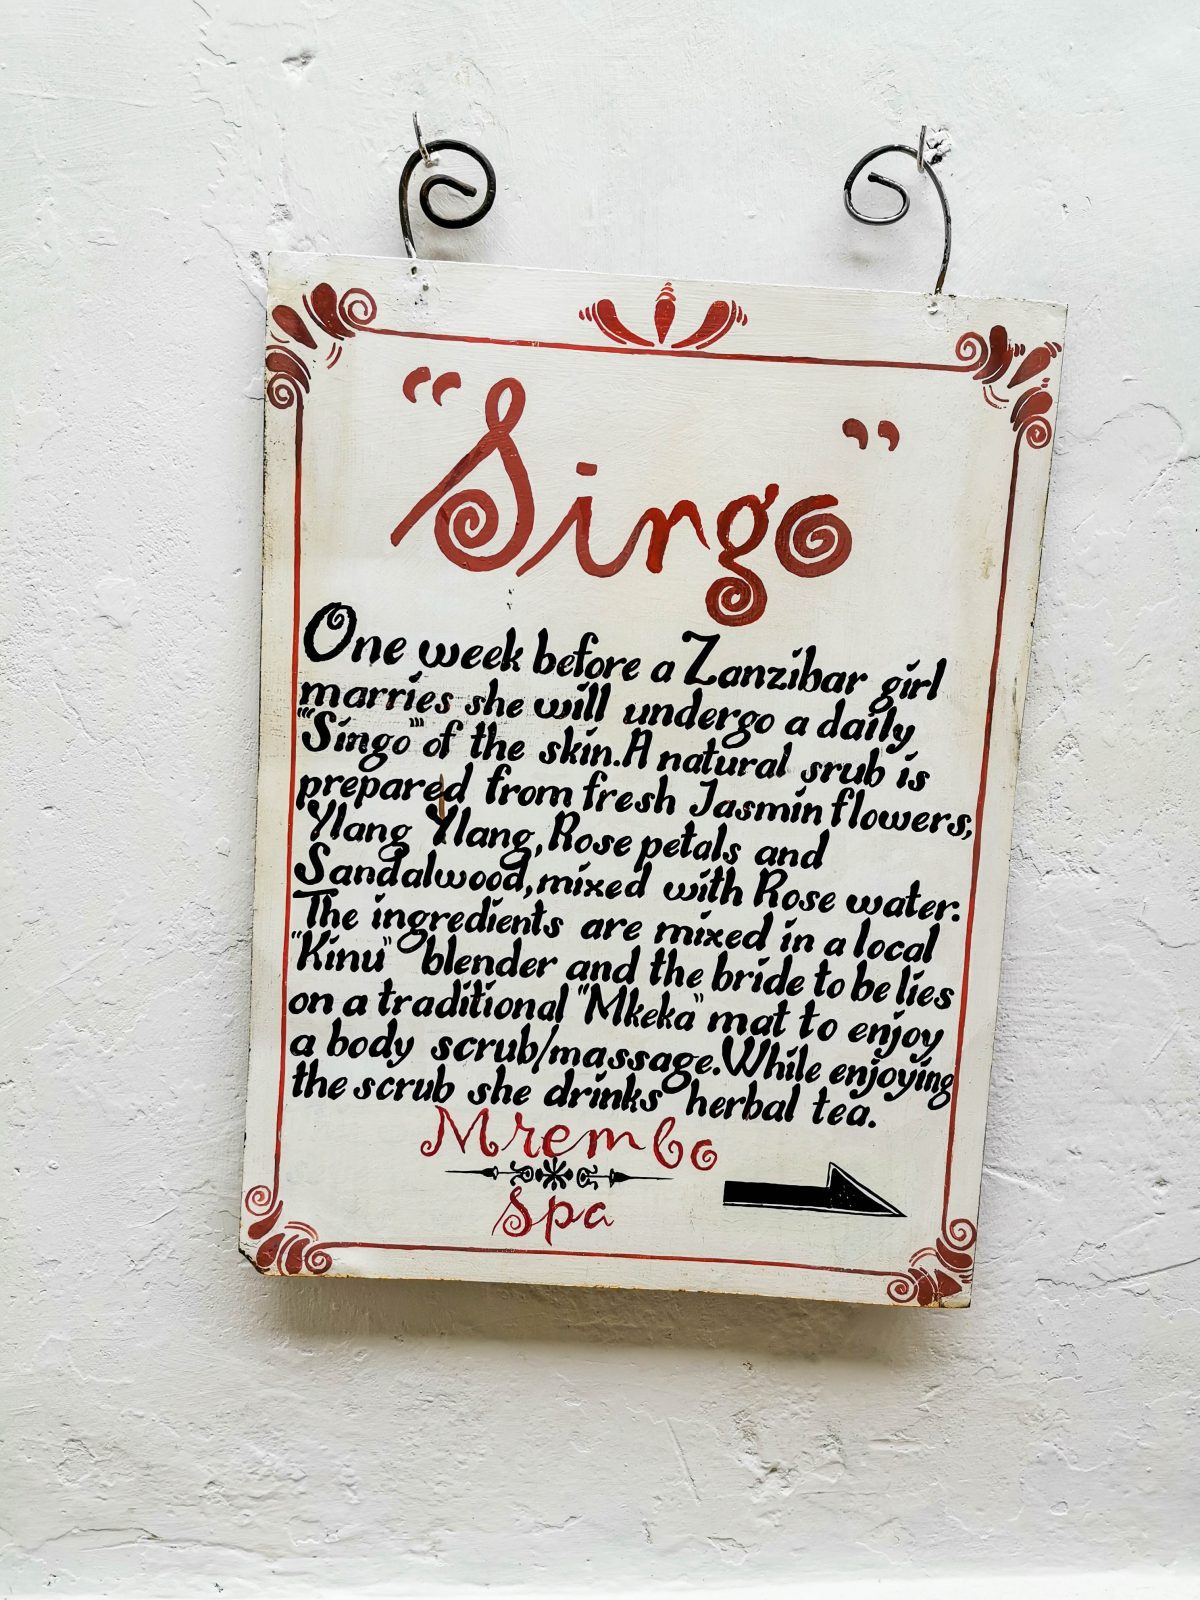 "Singo"
One week before a Zanzibar girl
marries she will undergo a daily
"Singo" of the skin. A natural srub is
prepared from fresh Jasmin flowers,
Ylang Ylang, Rose petals and
Sandalwood, mixed with Rose water.
The ingredients are mixed in a local
"Kinu" blender and the bride to be lies
on a traditional "Mkeka" mat to enjoy
a body scrub/massage. While enjoying
the scrub she drinks herbal tea.
Mrembo
Spa